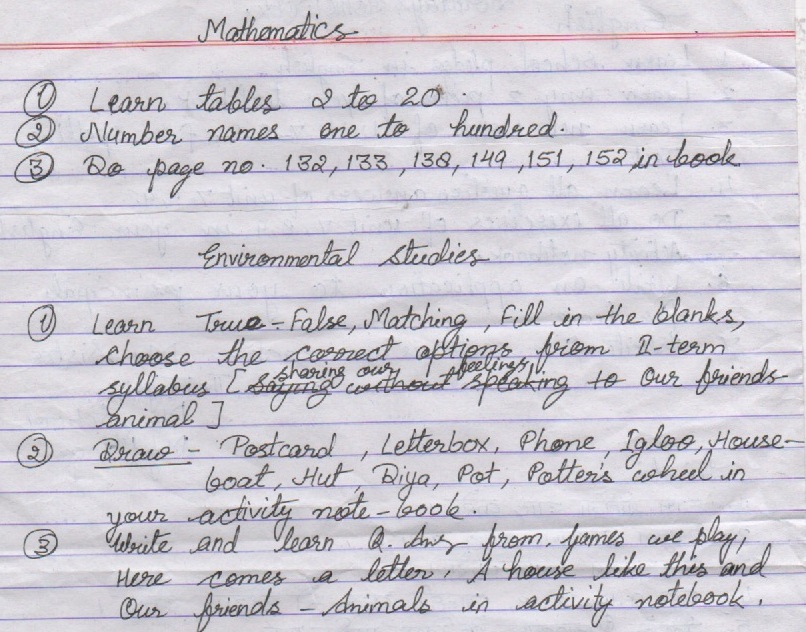 Mathematics
① Learn tables 2 to 20.
② Number names one to hundred.
③ Do page no. 132, 133, 138, 149, 151, 152 in book
Environmental Studies
① Learn True - False, Matching, Fill in the blanks,
choose the correct options from II-term
sharing our feelings,
syllabus [ Saying without speaking to Our friends
animal ]
② Draw - Postcard, Letterbox, Phone, Igloo, House-
boat, Hut, Diya, Pot, Potter's wheel in
your activity note-book.
③ Write and learn Q. Ans from. Games we play,
Here comes a letter, A house like this and
Our friends - Animals in activity notebook.